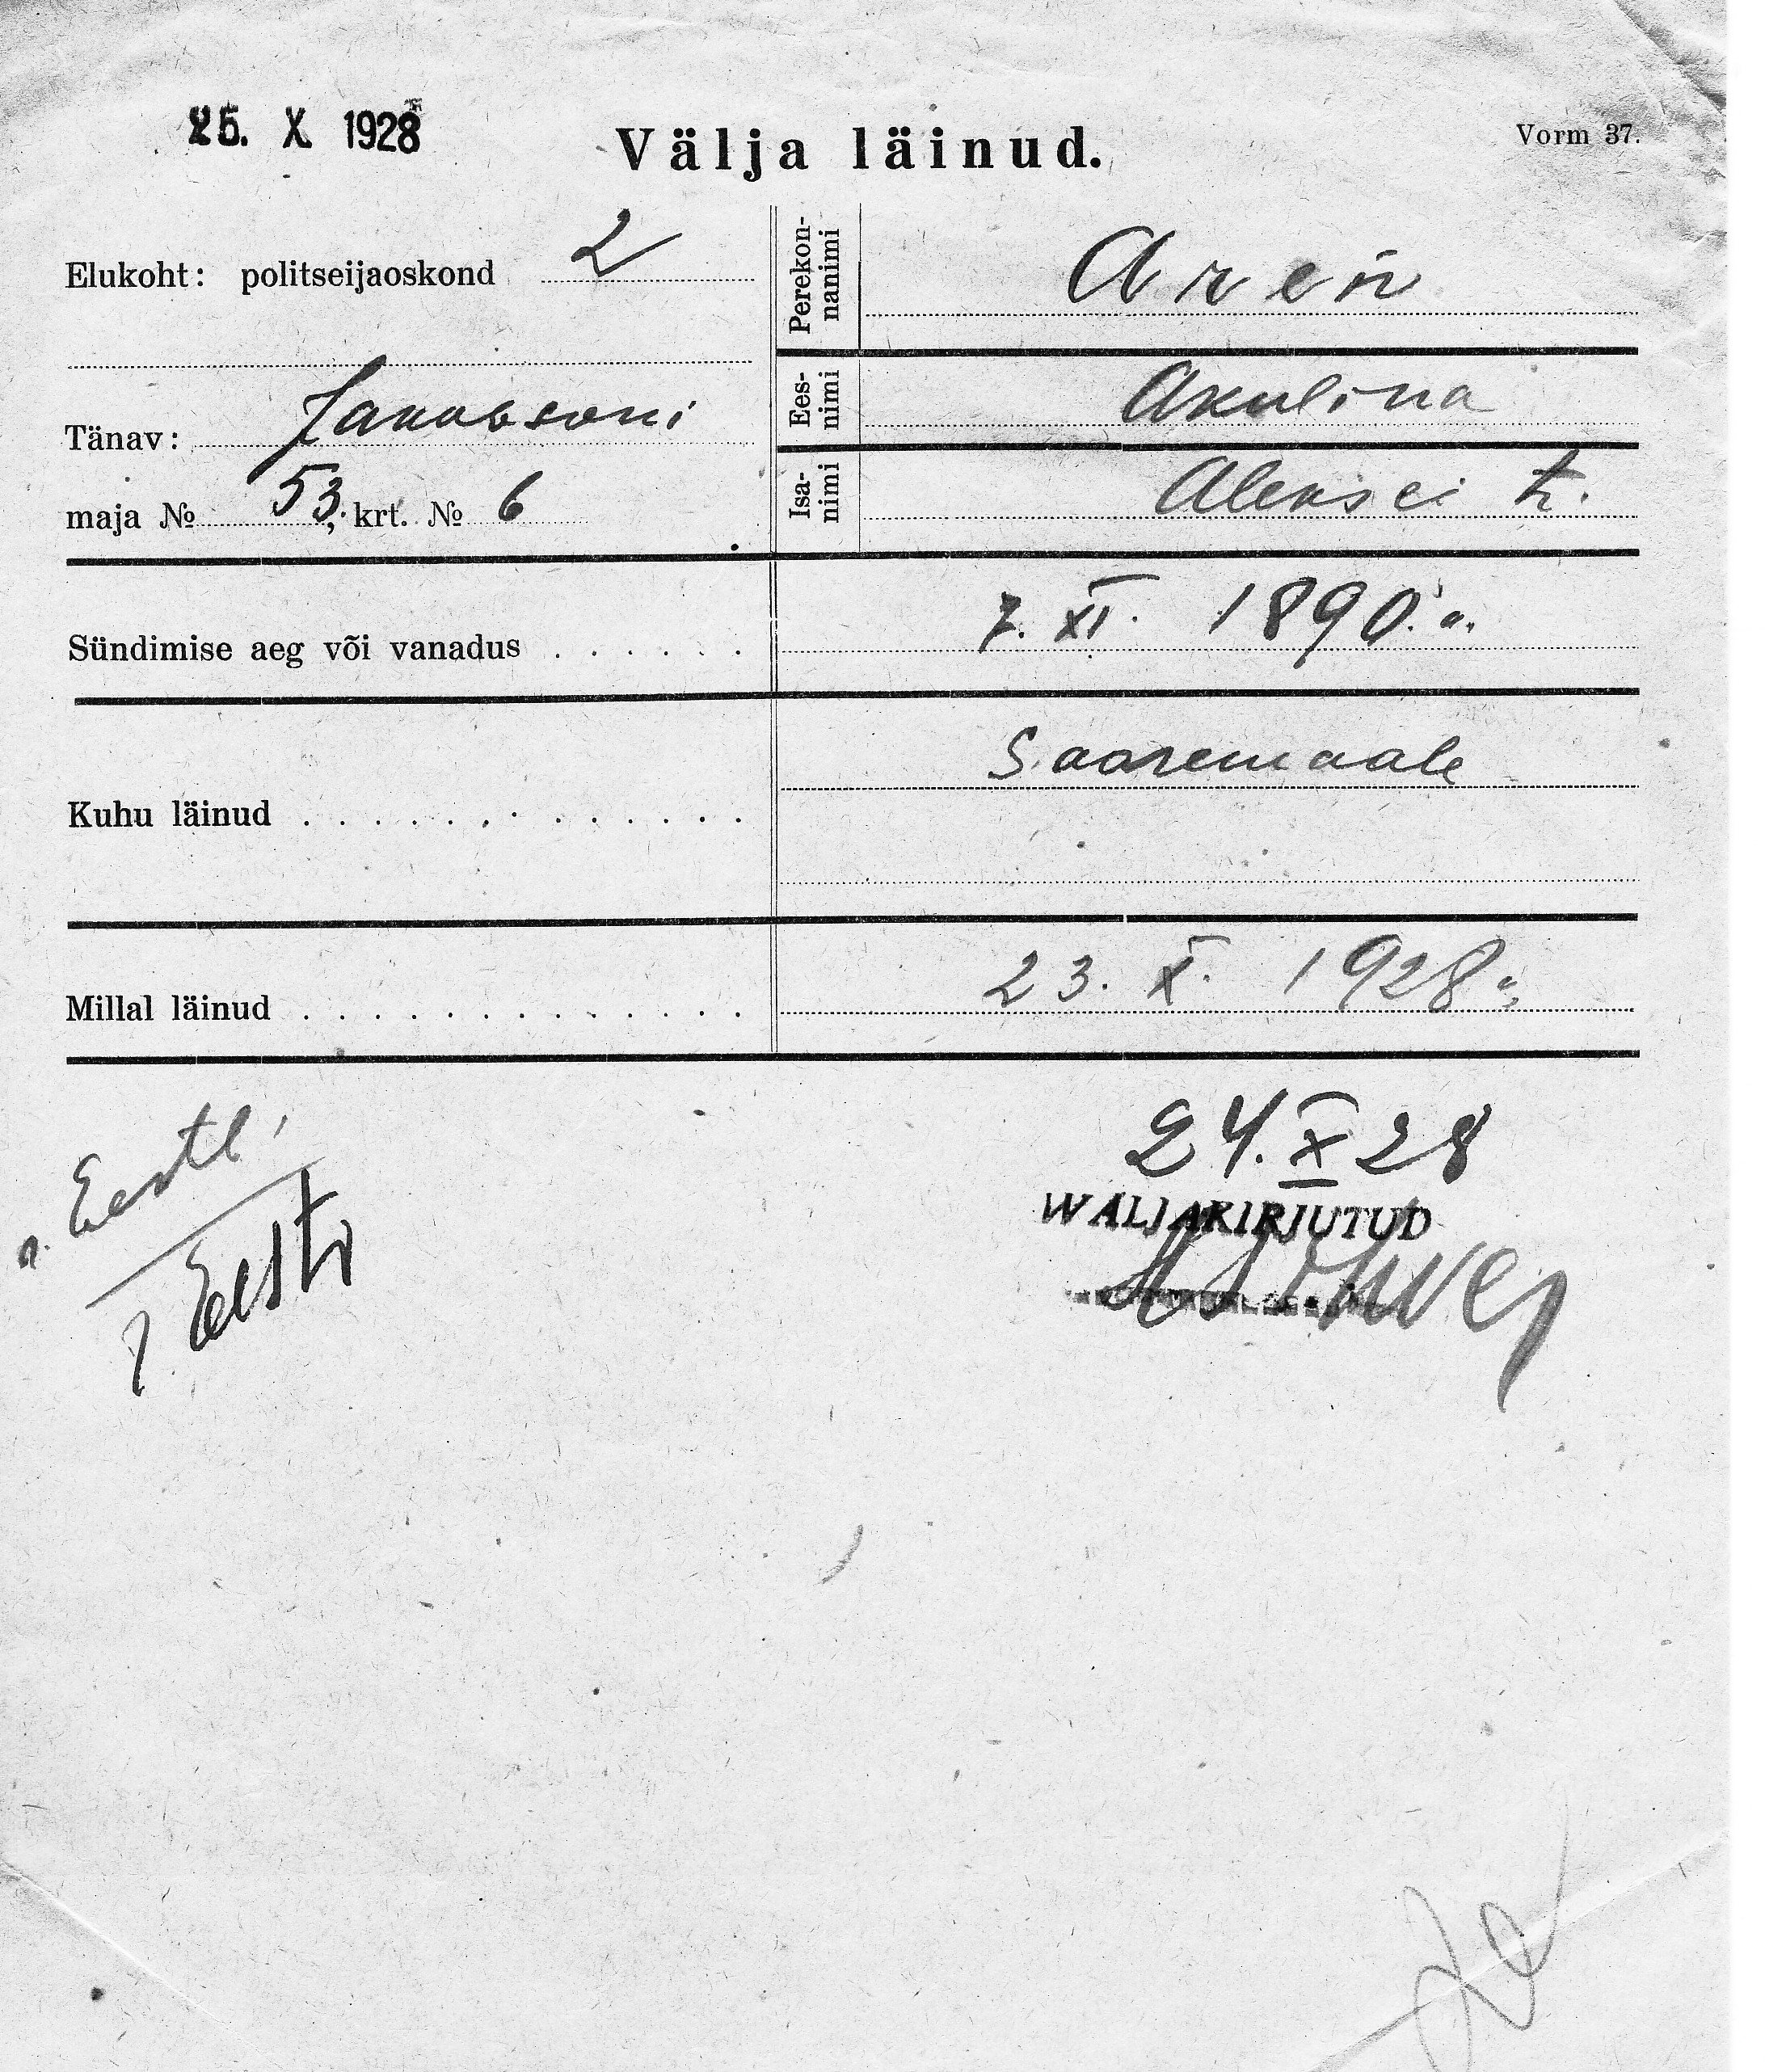 25. X 1928
Välja läinud.
Vorm 37.
Elukoht: politseijaoskond 2
Perekon-
nanimi
Aren
Tänav: Jakobsoni
Ees-
nimi
Akulina
maja № 53, krt. № 6
Isa-
nimi
Aleksei t.
Sündimise aeg või vanadus . . . . . . 7. XI. 1890. a.
Kuhu läinud . . . . . . . . . . . . . Saaremaale
Millal läinud . . . . . . . . . . . . . 23. X. 1928 a.
24. X 28
WALJAKIRJUTUD
Eestl.
Eesti